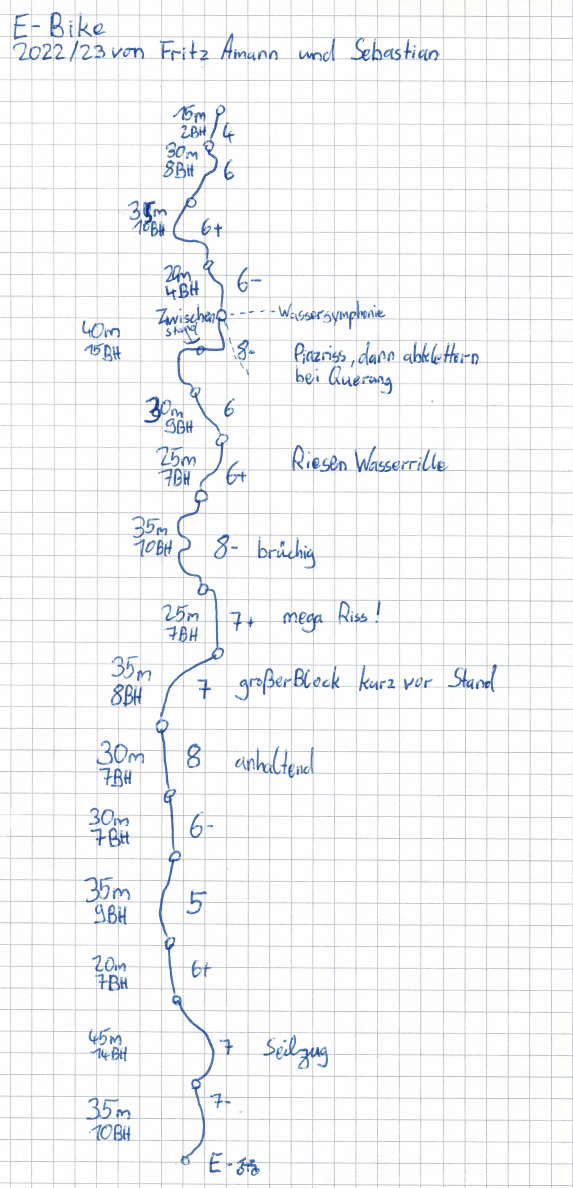 E-Bike
2022/23 von Fritz Amann und Sebastian
15m
2BH 4
30m
8BH 6
35m
10BH 6+
20m
4BH 6-
Zwischen
stand
Wassersymphonie
40m
15BH
8-
Pinzriss, dann abklettern
bei Querung
30m
9BH
6
25m
7BH
6+
Riesen Wasserrille
35m
10BH
8- brüchig
25m
7BH
7+ mega Riss!
35m
8BH
7 großer Block kurz vor Stand
30m
7BH
8 anhaltend
30m
7BH
6-
35m
9BH
5
20m
7BH
6+
45m
14BH
7 Seilzug
35m
10BH
7-
E-